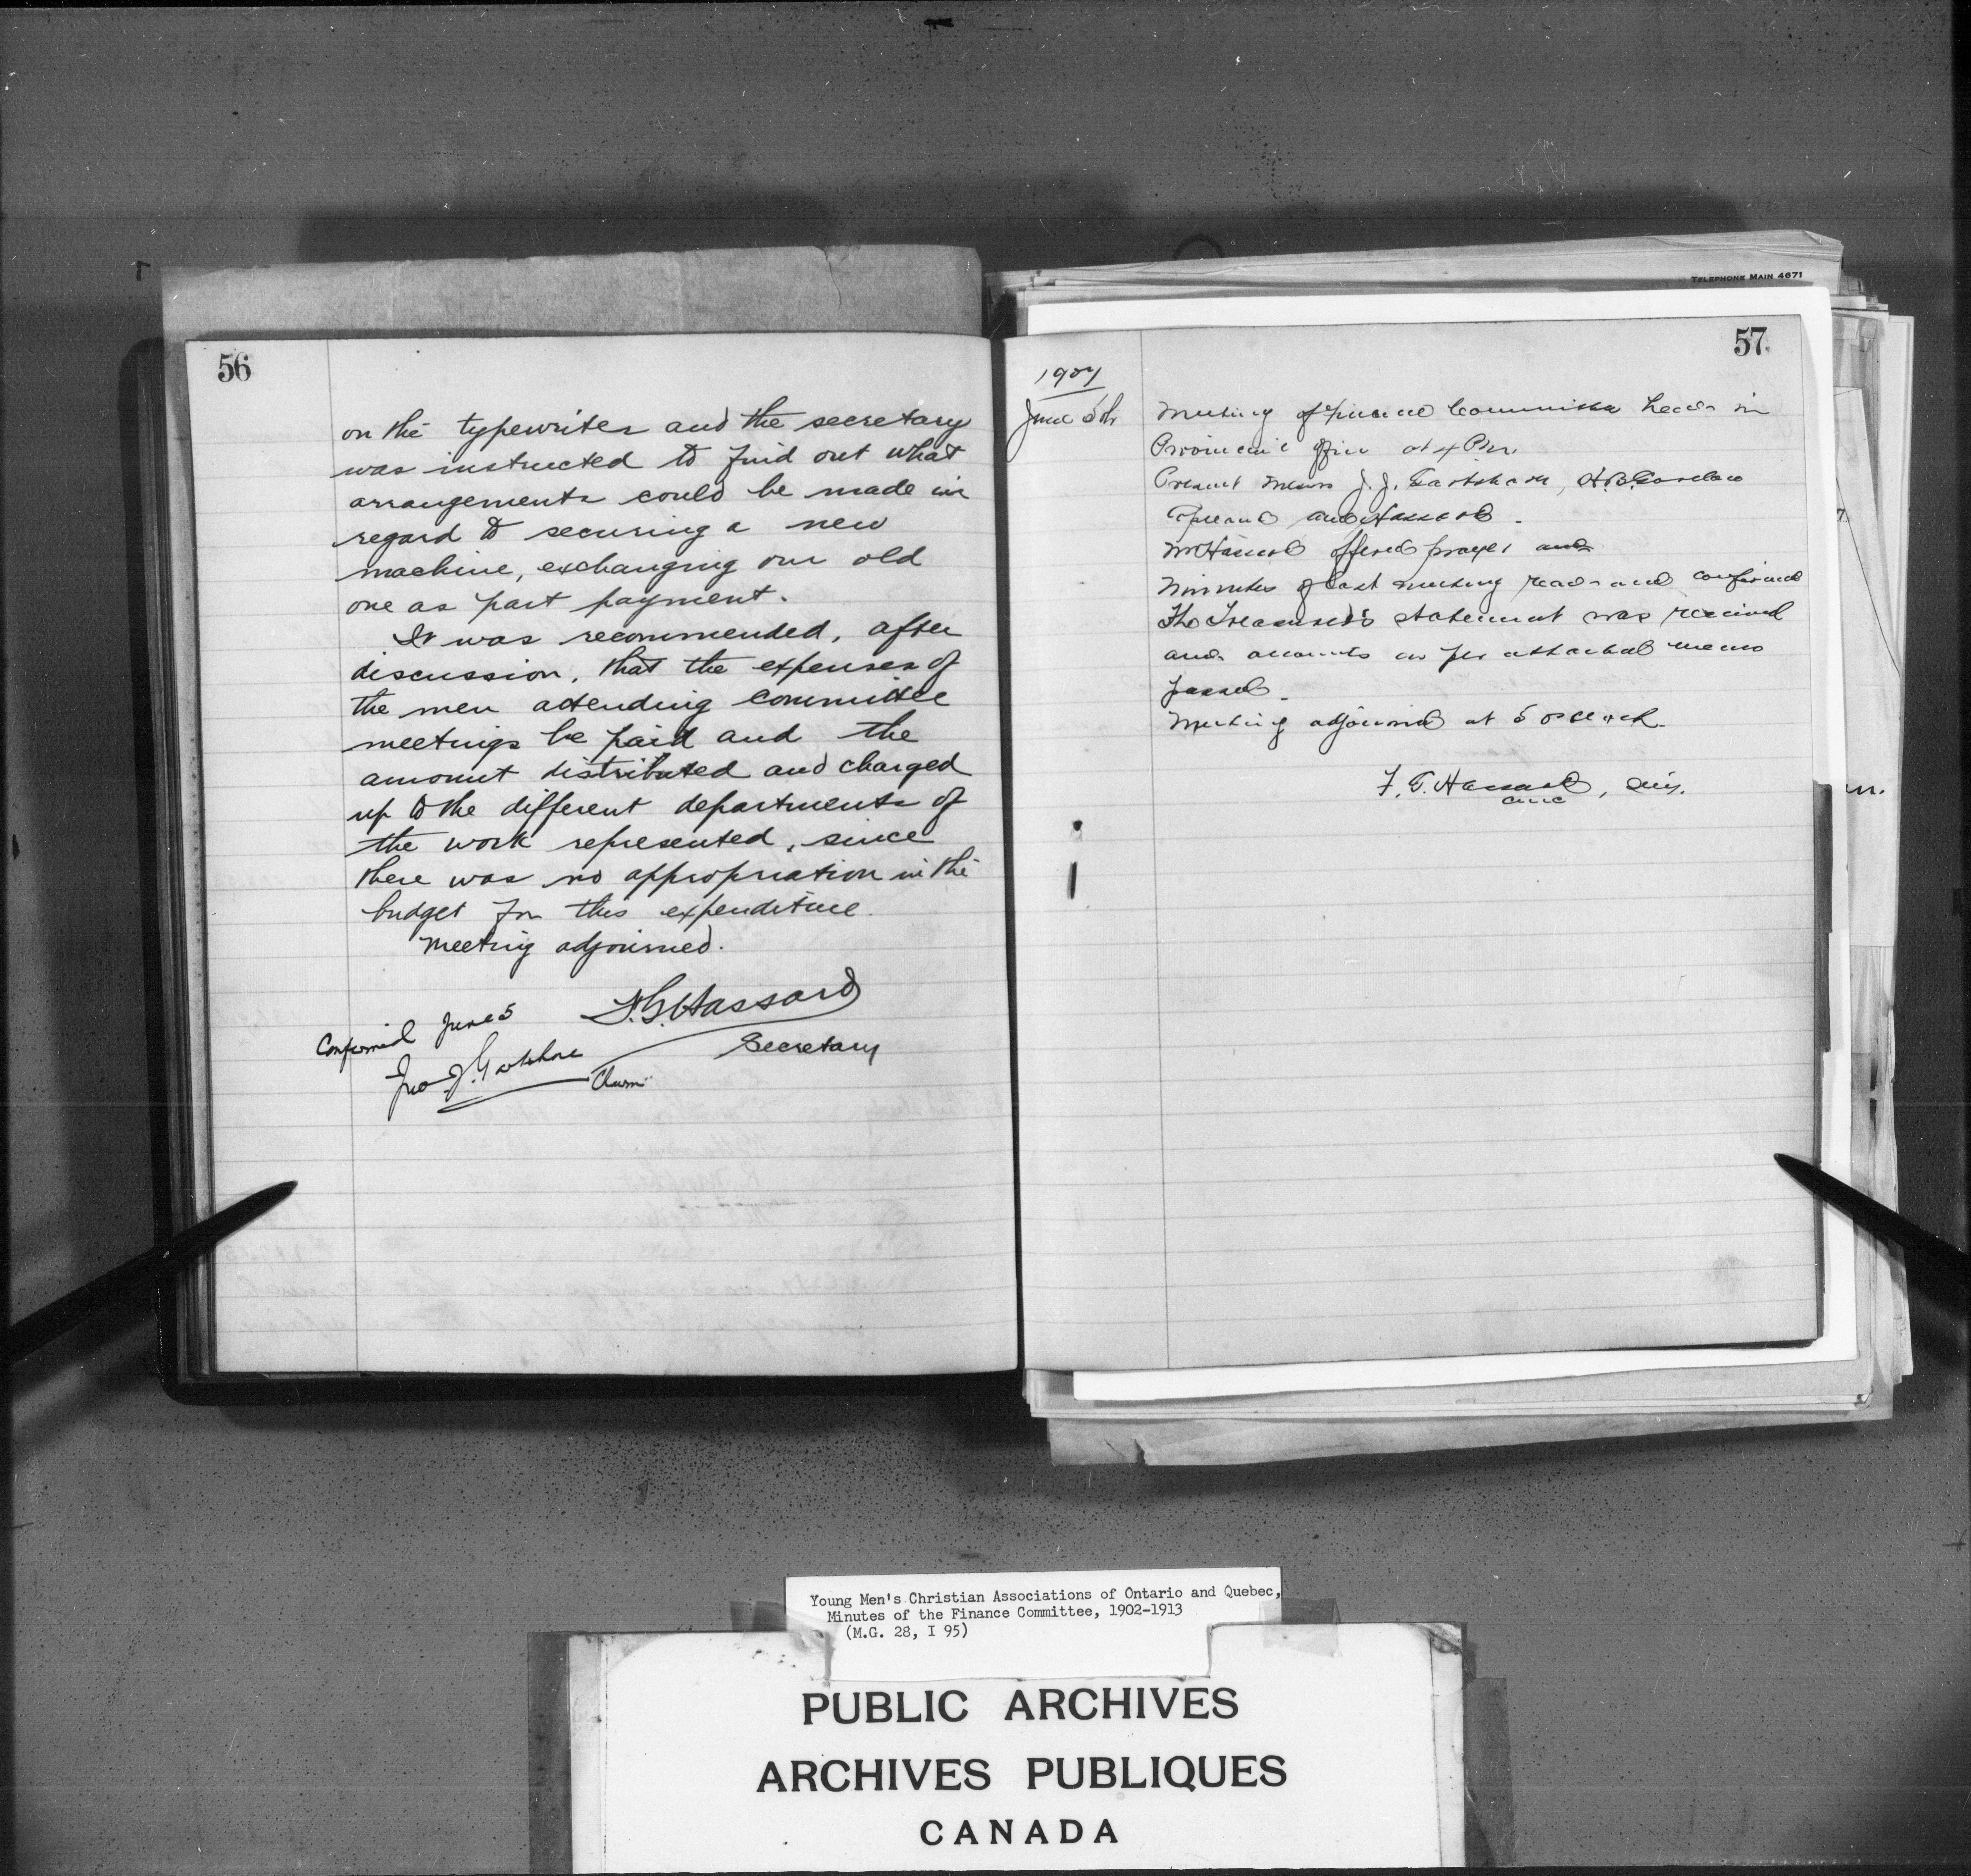 TELEPHONE MAIN 4671
56
on the typewriter and the secretary
was instructed to find out what
arrangements could be made in
regard to securing a new
machine, exchanging our old
one as part payment.
It was recommended, after
discussion, that the expenses of
the men attending committee
meetings be paid and the
amount distributed and charged
up to the different departments of
the work represented, since
there was no appropriation in the
budget for this expenditure.
Meeting adjourned.
F.G. Hassard
Secretary
Confirmed June 5
Jno J. Gartshore
Chrm
57
1907
June 5th
Meeting of Finance Committee held in
Provincial office at 4 P.M.
Present Messrs J.J. Gartshore, H.B.
Copeland and Hassard.
Mr Hassard offered prayer and
Minutes of last meeting read and confirmed
The Treasurer's statement was received
and accounts as per attached memo
passed.
Meeting adjourned at 5 o'clock.
F. G. Hassard,
Young Men's Christian Associations of Ontario and Quebec,
Minutes of the Finance Committee, 1902-1913
(M.G. 28, I 95)
PUBLIC ARCHIVES
ARCHIVES PUBLIQUES
CANADA